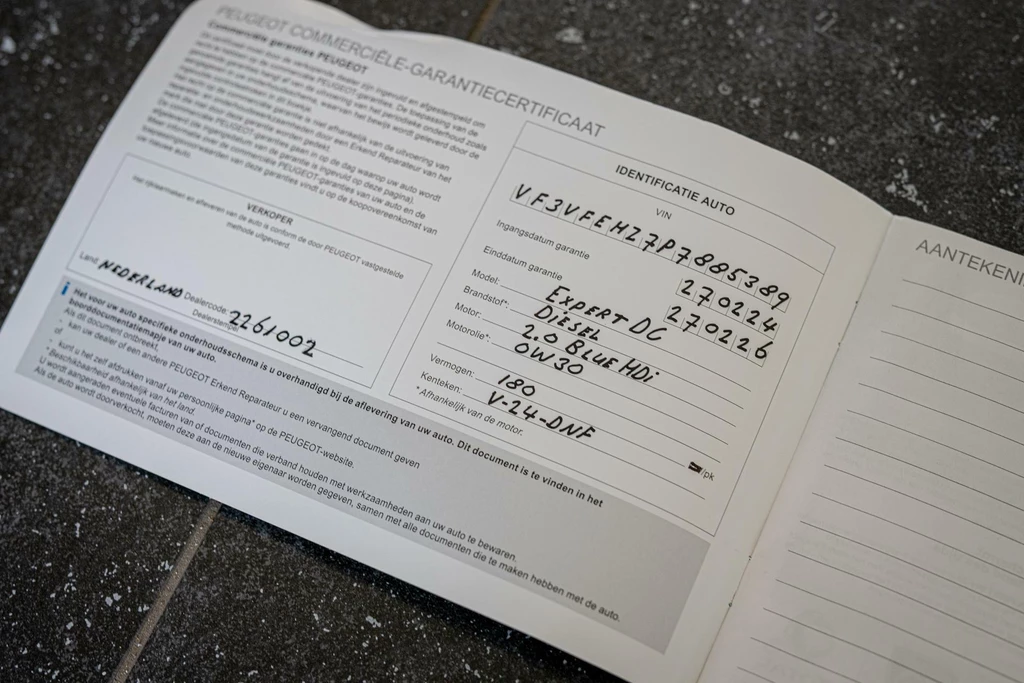 PEUGEOT COMMERCIËLE-GARANTIECERTIFICAAT
Commerciële garanties PEUGEOT
VERKOPER
Het rijklaarmaken en afleveren van de auto is conform de door PEUGEOT vastgestelde
methode uitgevoerd.
Land: NEDERLAND Dealercode: 2261002
Dealerstempel
i Het voor uw auto specifieke onderhoudsschema is u overhandigd bij de aflevering van uw auto. Dit document is te vinden in het
boorddocumentatiemapje van uw auto.
Als dit document ontbreekt,
- kan uw dealer of een andere PEUGEOT Erkend Reparateur u een vervangend document geven
of
- kunt u het zelf afdrukken vanaf uw persoonlijke pagina* op de PEUGEOT-website.
* Beschikbaarheid afhankelijk van het land.
U wordt aangeraden eventuele facturen van of documenten die verband houden met werkzaamheden aan uw auto te bewaren.
Als de auto wordt doorverkocht, moeten deze aan de nieuwe eigenaar worden gegeven, samen met alle documenten die te maken hebben met de auto.
IDENTIFICATIE AUTO
VIN
VF3VFEHZ7P7885389
Ingangsdatum garantie 270224
Einddatum garantie 270226
Model: EXPERT DC
Brandstof*: DIESEL
Motor: 2.0 BLUE HDi
Motorolie*: 0W30
Vermogen: 180 /pk
Kenteken: V-24-DNF
* Afhankelijk van de motor.
AANTEKENI